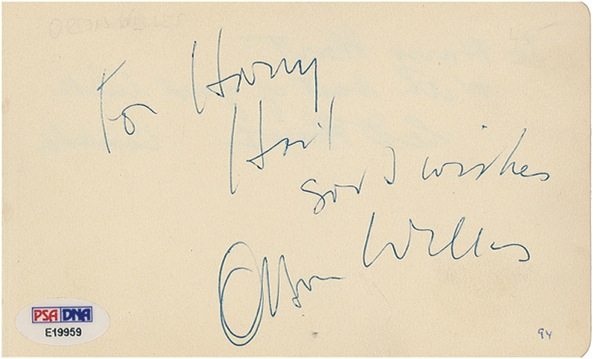 For Harry
Hail
good wishes
Orson Welles
PSA DNA
E19959
94